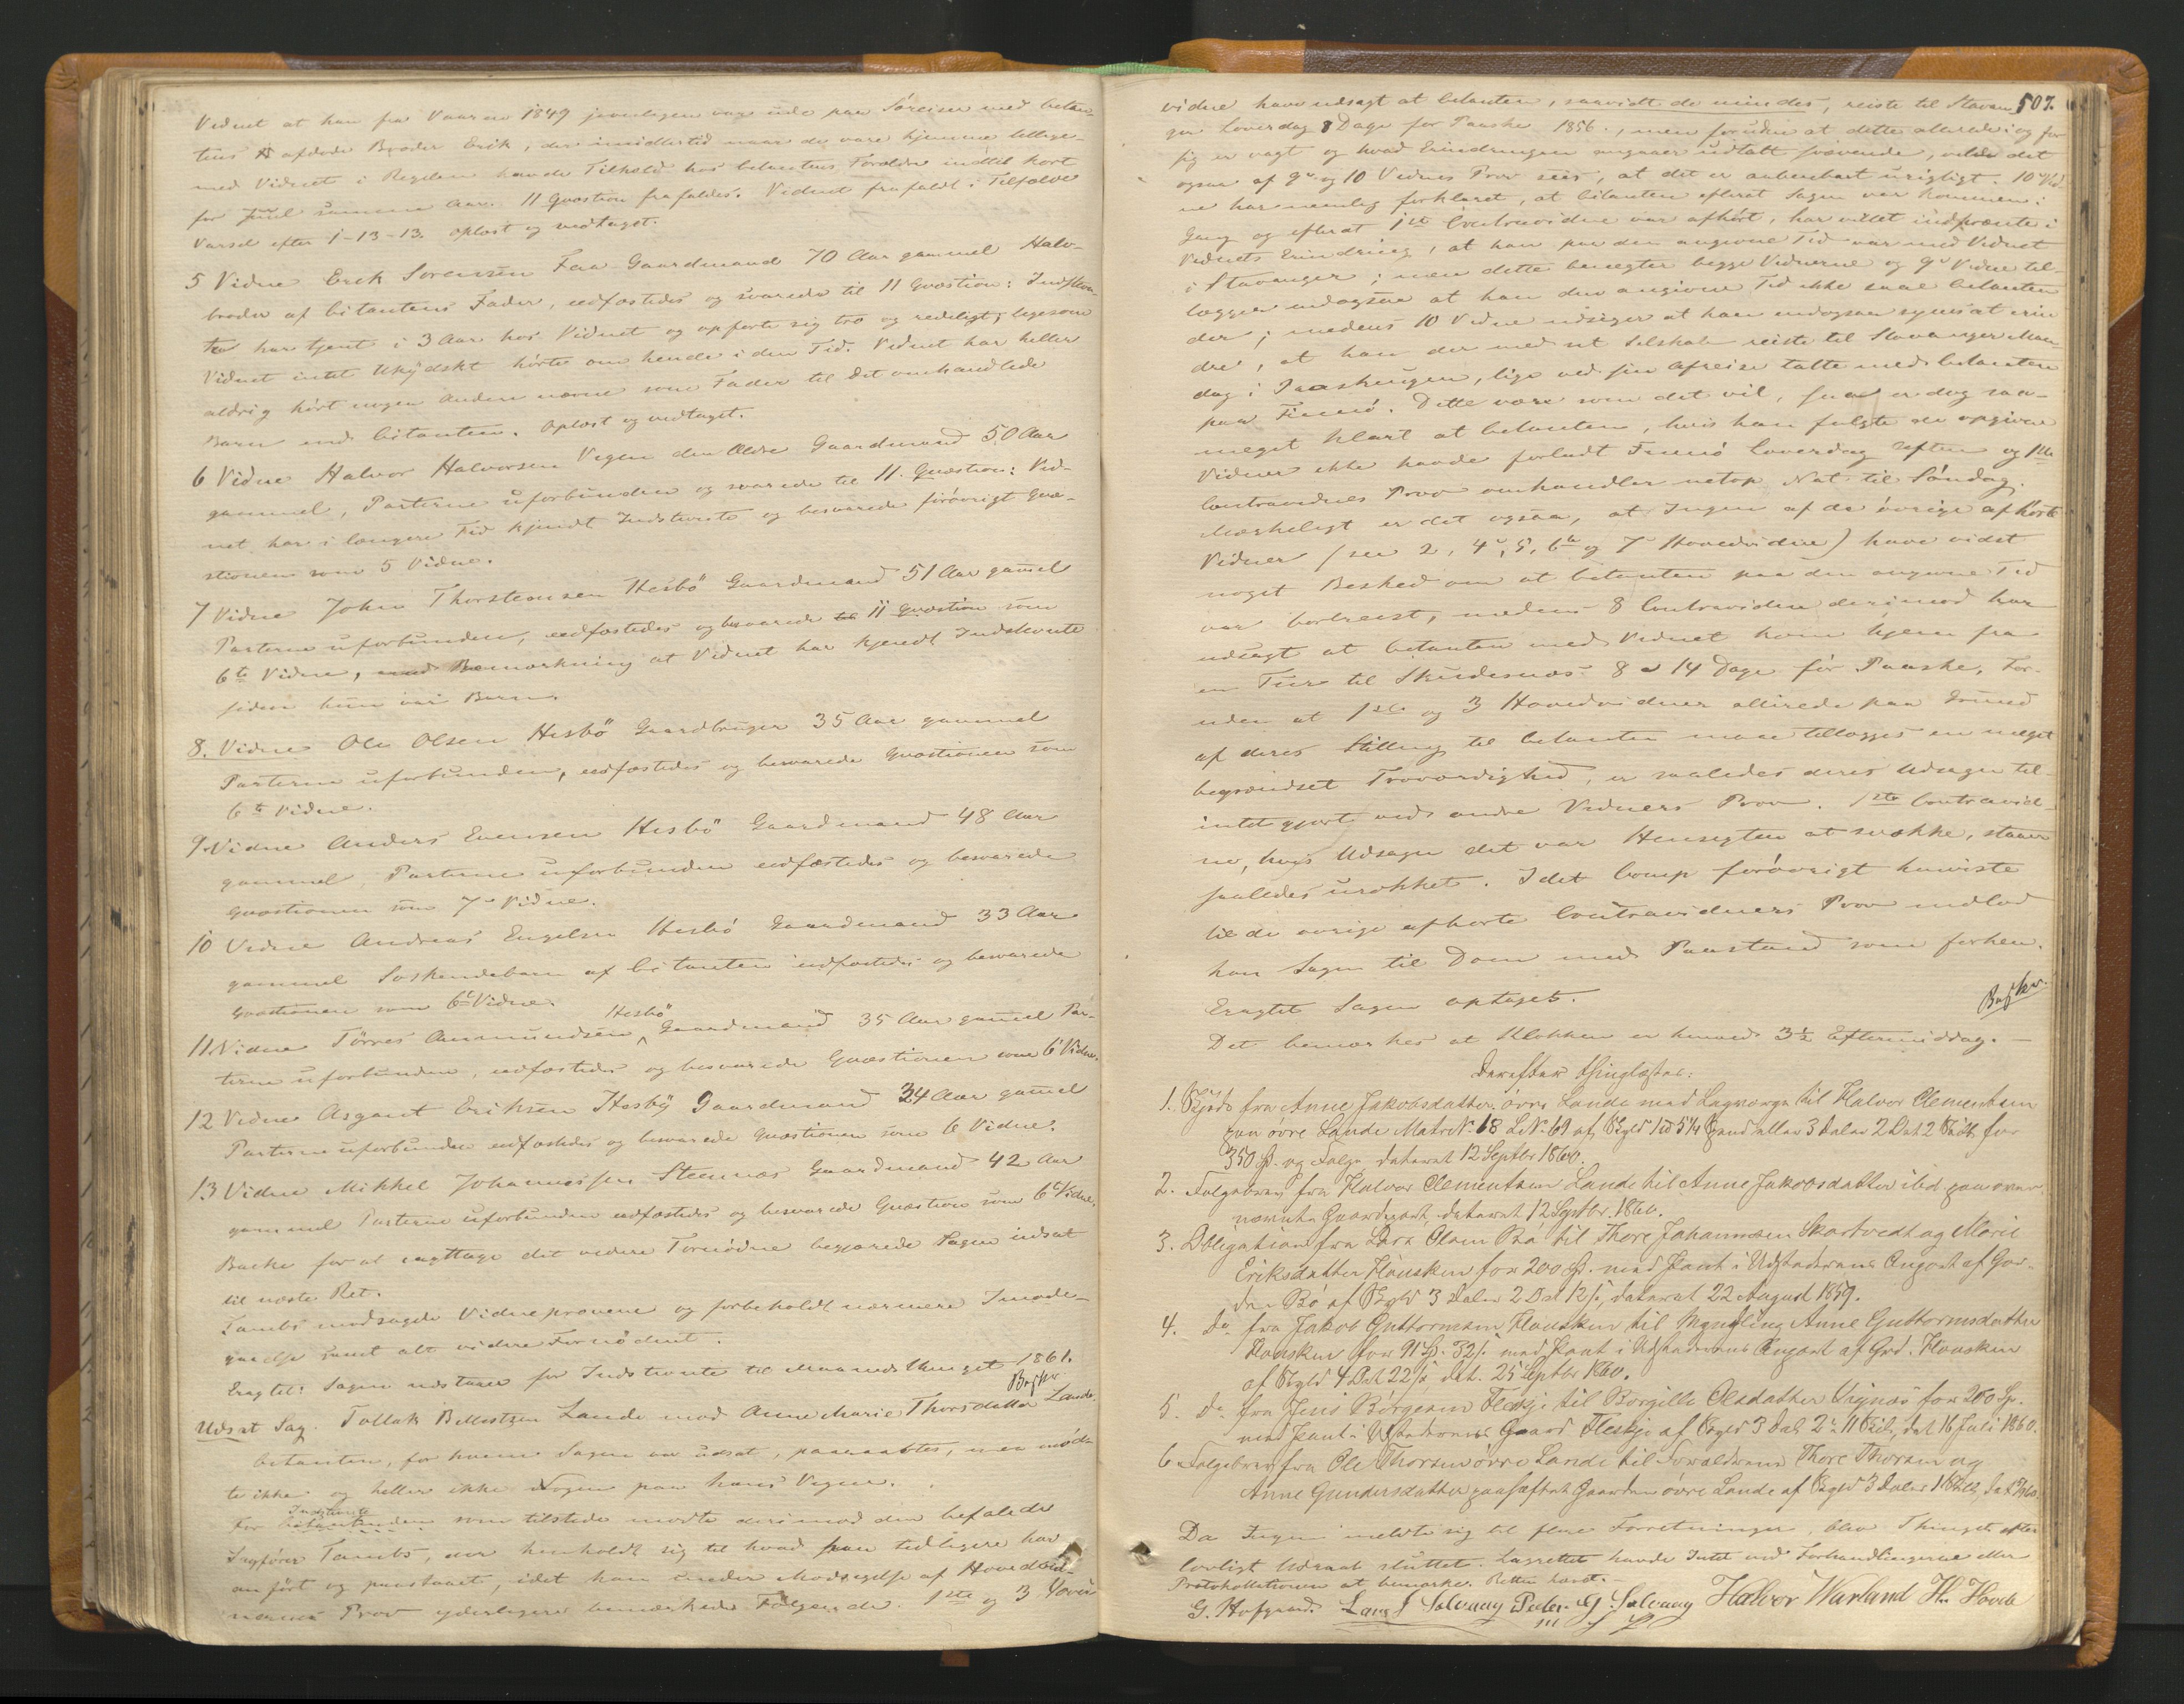 Vidnet at han fra Vaaren 1849 jevnligen var ude paa Søreiser med citan-
tens afdøde Broder Erik, der imidlertid naar de vare hjemme tillige-
med Vidnet i Regelen havde Tilhold hos citantens Forældre indtil kort
før Juul samme Aar. 11 Qvæstion frafaldes. Vidnet frafaldt i Tilfælde
Varsel efter 1-13-13. Oplæst og vedtaget.
5 Vidne Erik Sørensen Faa Gaardmand 70 Aar gammel Halv-
broder af citantens Fader, eedfæstedes og svarede til 11 Qvæstion: Indstevn-
te har tjent i 3 Aar hos Vidnet og opførte sig tro og redeligt, ligesom
Vidnet intet ukydskt hørte om hende i den Tid. Vidnet har heller
aldrig hørt nogen Anden nævne som Fader til det omhandlede
Barn end citanten. Oplæst og vedtaget.
6 Vidne Halvor Halvorsen Vegen den Ældre Gaardmand 50 Aar
gammel, Parterne uforbunden og svarede til 11. Qvæstion: Vid-
net har i længere Tid kjendt Indstevnte og besvarede forøvrigt Qvæ-
stionen som 5 Vidne.
7 Vidne John Thorsteensen Hesbö Gaardmand 51 Aar gamel
Parterne uforbunden, eedfæstedes og besvarede 11 Qvæstion som
6te Vidne, med Bemærkning at Vidnet har kjendt Indstevnte
siden hun var Barn.
8. Vidne Ole Olsen Hesbö Gaardbruger 35 Aar gammel
Parterne uforbunden, eedfæstedes og besvarede Qvæstionen som
6te Vidne.
9 Vidne Anders Evensen Hesbö Gaardmand 48 Aar
gammel, Parterne uforbunden eedfæstedes og besvarede
Qvæstionen som 7de Vidne.
10 Vidne Andreas Engelsen Hesbö Gaardmand 33 Aar
gammel Søskendebarn af citanten eedfæstedes og besvarede
Qvæstionen som 6te Vidne.
11. Vidne Törres Aamundsen Hesbö Gaardmand 35 Aar gamel Par-
terne uforbunden, eedfæstedes og besvarede Qvæstionen som 6te Vidne.
12 Vidne Asgaut Eriksen Hesbö Gaardmand 34 Aar gamel
Parterne uforbunden eedfæstedes og besvarede Qvæstionen som 6 Vidne.
13 Vidne Mikkel Johannessen Steensnæs Gaardmand 42 Aar
gammel Parterne uforbunden eedfæstedes og besvarede Qvæstion som 6te Vidne.
Backe for at iagttage det videre Fornødne begjærede Sagen udsat
til næste Ret.
Tambs modsagde Vidneprovene og forbeholdt nærmere Imøde-
gaaelse samt alt videre Fornødent.
Eragtet: Sagen udstaaer for Indstevnte til Maanedsthinget 1861.
Udsat Sag. Tollak Lande mod Anne Marie Thorsdatter Lande.
Citanten, for hvem Sagen var udsat, paaraabtes, men mød-
te ikke og heller ikke Nogen paa hans Vegne.
For Indstevnte som tilstede mødte derimod den befalede
Sagfører Tambs, der henholdt sig til hvad han tidligere har
anført og paastaaet, idet han under Modsigelse af Hovedvid-
nernes Prov yderligere bemærkede Følgende. 1ste og 3

507.
vidne have udsagt at citanten, saavidt de mindes, reiste til Stavan-
ger Løverdag 8 Dage før Paaske 1856, men foruden at dette allerede i og for
sig er vagt og hvad Erindringen angaaer udtalt svævende, vilde det
ogsaa af 9de og 10 Vidnes Prov sees, at det er aabenbart urigtigt. 10de Vid-
ne har nemlig forklaret, at citanten efterat Sagen var kommen i
Gang og efterat 1ste Contravidne var afhørt, har villet indprænte i
Vidnets Erindring, at han paa den angivne Tid var med Vidnet
i Stavanger; men dette benægter begge Vidnerne og 9de Vidne til-
lægger endogsaa at han den angivne Tid ikke saae citanten
der; medens 10 Vidne udsiger at han endogsaa synes at erin
dre, at han der med et Selskab reiste til Stavanger Man
dag i Paaskeugen, lige ved sin Afreise talte med citanten
paa Finnö. Dette være som det vil, saa er dog saa-
meget klart at citanten, hvis han fulgte de opgivne
Vidner ikke havde forladt Finnö Løverdag Aften og 1ste
Contravidnes Prov omhandler netop Nat til Søndag.
Mærkeligt er det ogsaa, at Ingen af de øvrige afhørte
Vidner (see 2, 4de, 5, 6te og 7de Hovedvidne) have vidst
noget Besked om at citanten paa den angivne Tid
var bortreist, medens 8 Contravidne derimod har
udsagt at citanten med Vidnet kom hjem fra
en Tur til Skudesnæs 8 a 14 Dage før Paaske. For-
uden at 1ste og 3 Hovedvidner allerede paa Grund
af deres Stilling til citanten maae tillægges en meget
begrændset Troværdighed, er saaledes deres Udsagn til-
intetgjort ved andre Vidners Prov. 1ste Contravid-
ne, hvis Udsagn det var Hensigten at svække, staaer
saaledes urokket. I det Comp forøvrigt henviste
til de øvrige afhørte Contravidners Prov indlod
han Sagen til Dom med Paastand som forhen.
Eragtet Sagen optaget.
Det bemærkes at Klokken er henved 3½ Eftermiddag. —
Derefter thinglæstes:
1. Skjøde fra Anne Jakobsdatter øvre Lande med Laugværge til Halvor Clementsen
paa øvre Lande Matr N. 18 L N. 61 af Skyld eller 3 Daler 2 Ort 2 Skill. for
350 Sp. og Folge, dateret 12 Septbr 1860.
2. Folgebrev fra Halvor Clementsen Lande til Anne Jakobsdatter ibid. paa oven
nævnte Gaardpart, dateret 12 Septbr. 1860.
3. Obligation fra Lars Olsen Bø til Thore Johannesen Skartvedt og Marit
Eriksdatter Hausken for 200 Sp. med Pant i Udstederens Anpart af Gar-
den Bø af Skyld 3 Daler 2 Ort 12 s, dateret 22 August 1859.
4. Do fra Jakob Guttormsen Hausken til Myndling Anne Guttormsdatter
Hausken for 91 Sp. 32 s. med Pant i Udstederens Anpart af Grd. Hausken
af Skyld 4 Ort 22 s, dat. 25 Septbr 1860.
5. Do fra Jens Börgesen Fleskje til Borgille Olsdatter Vignæs for 200 Sp.
med Pant i Udstederens Gaard Fleskje af Skyld 3 Dal 2 11 Skil, dat 16 Juli 1860.
6 Folgebrev fra Ole Thorsen øvre Lande til Forældrene Thore Thorsen og
Anne Gundersdatter paahæftet Gaarden øvre Lande af Skyld 3 Daler 1
Da Ingen meldte sig til flere Forretninger, blev Thinget efter
lovligt Udraab sluttet. Lagrettet havde Intet ved Forhandlingerne eller
Protokollationen at bemærke. Retten hævet. —
G. Hofgaard. Lars J Salvaag Peder G. Salvaag Halvor Warland H. Hovda